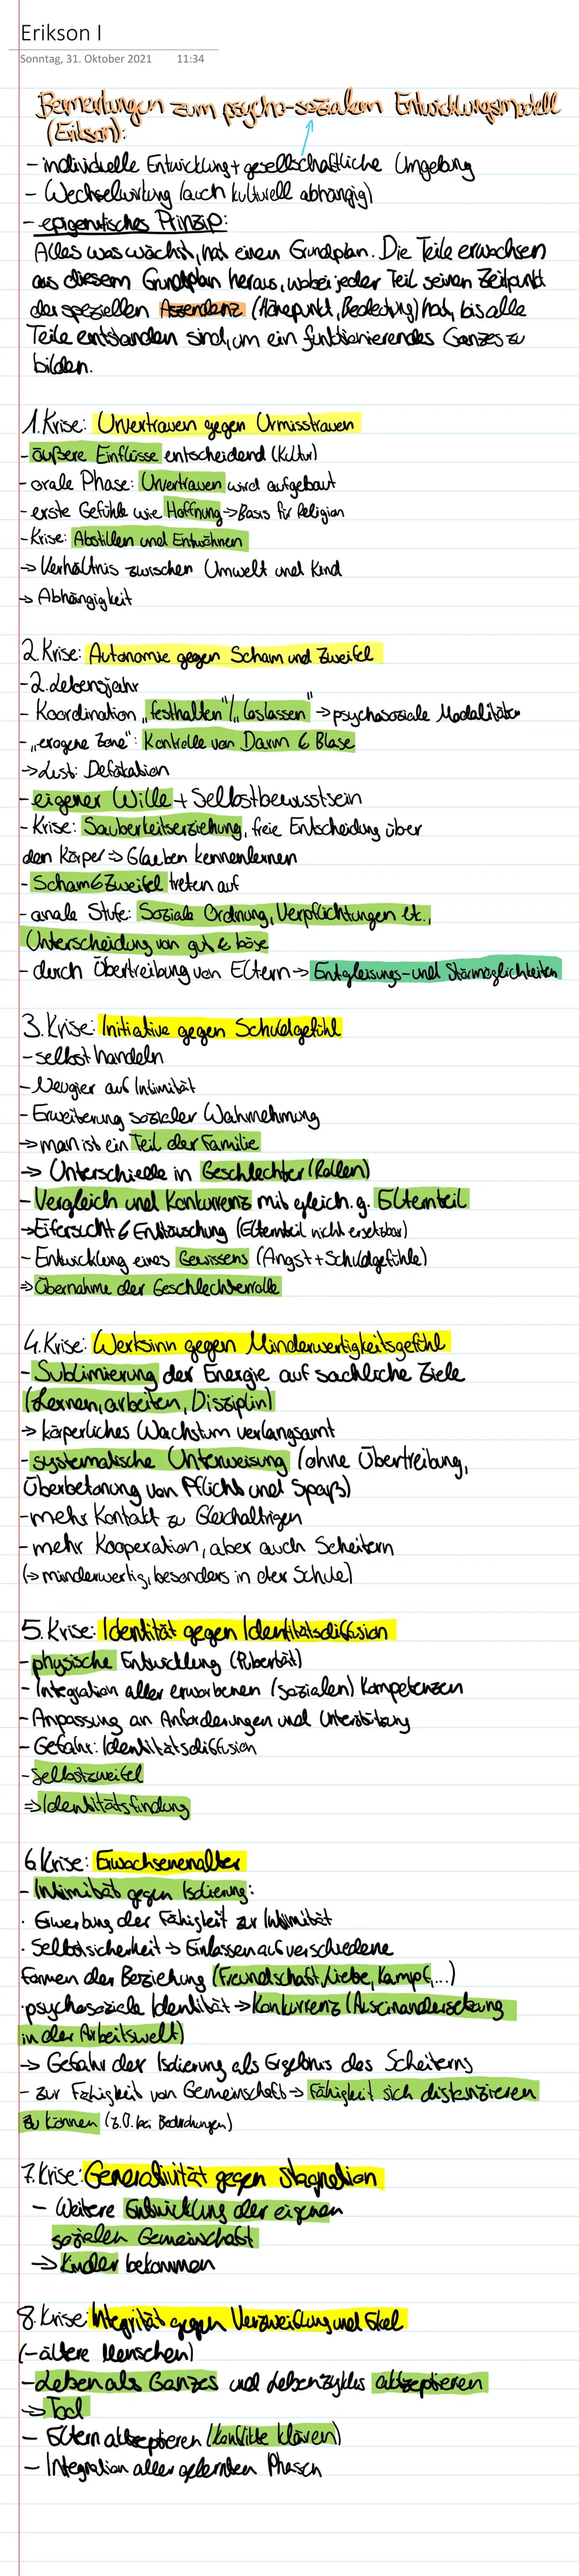 Erikson I
Sonntag, 31. Oktober 2021 11:34
Bemerkungen zum psycho-sozialen Entwicklungsmodell
(Erikson):
- individuelle Entwicklung + gesellschaftliche Umgebung
- Wechselwirkung (auch kulturell abhängig)
- epigenetisches Prinzip:
Alles was wächst, hat einen Grundplan. Die Teile erwachsen
aus diesem Grundplan heraus, wobei jeder Teil seinen Zeitpunkt
der speziellen Aszendenz (Höhepunkt, Bedeutung) hat, bis alle
Teile entstanden sind, um ein funktionierendes Ganzes zu
bilden.
1. Krise: Urvertrauen gegen Urmisstrauen
- äußere Einflüsse entscheidend (Kultur)
- orale Phase: Urvertrauen wird aufgebaut
- erste Gefühle wie Hoffnung → Basis für Religion
- Krise: Abstillen und Entwöhnen
→ Verhältnis zwischen Umwelt und Kind
→ Abhängigkeit
2. Krise: Autonomie gegen Scham und Zweifel
- 2. Lebensjahr
- Koordination „festhalten"/„loslassen" → psychosoziale Modalitäten
- „erogene Zone": Kontrolle von Darm & Blase
→ Lust: Defäkation
- eigener Wille + Selbstbewusstsein
- Krise: Sauberkeitserziehung, freie Entscheidung über
den Körper ⇒ Glauben kennenlernen
- Scham & Zweifel treten auf
- anale Stufe: Soziale Ordnung, Verpflichtungen etc.,
Unterscheidung von gut & böse
- durch Übertreibung von Eltern → Entgleisungs- und Störmöglichkeiten
3. Krise: Initiative gegen Schuldgefühl
- selbst handeln
- Neugier auf Intimität
- Erweiterung sozialer Wahrnehmung
→ man ist ein Teil der Familie
→ Unterschiede in Geschlechter (Rollen)
- Vergleich und Konkurrenz mit gleich. g. Elternteil
→ Eifersucht & Enttäuschung (Elternteil nicht ersetzbar)
- Entwicklung eines Gewissens (Angst + Schuldgefühle)
⇒ Übernahme der Geschlechterrolle
4. Krise: Werksinn gegen Minderwertigkeitsgefühl
- Sublimierung der Energie auf sachliche Ziele
(Lernen, arbeiten, Disziplin)
→ körperliches Wachstum verlangsamt
- systematische Unterweisung (ohne Übertreibung,
Überbetonung von Pflicht und Spaß)
- mehr Kontakt zu Gleichaltrigen
- mehr Kooperation, aber auch Scheitern
(→ minderwertig, besonders in der Schule)
5. Krise: Identität gegen Identitätsdiffusion
- physische Entwicklung (Pubertät)
- Integration aller erworbenen (sozialen) Kompetenzen
- Anpassung an Anforderungen und Unterstützung
- Gefahr: Identitätsdiffusion
- Selbstzweifel
⇒ Identitätsfindung
6. Krise: Erwachsenenalter
- Intimität gegen Isolierung:
· Erwerbung der Fähigkeit zur Intimität
· Selbstsicherheit → Einlassen auf verschiedene
Formen der Beziehung (Freundschaft, Liebe, Kampf, ...)
· psychosoziale Identität → Konkurrenz (Auseinandersetzung
in der Arbeitswelt)
→ Gefahr der Isolierung als Ergebnis des Scheiterns
- zur Fähigkeit von Gemeinschaft → Fähigkeit sich distanzieren
zu können (z.B. bei Bedrohungen)
7. Krise: Generativität gegen Stagnation
- Weitere Entwicklung der eigenen
sozialen Gemeinschaft
→ Kinder bekommen
8. Krise: Integrität gegen Verzweiflung und Ekel
(- ältere Menschen)
- Leben als Ganzes und Lebenszyklus akzeptieren
→ Tod
- Eltern akzeptieren (Konflikte klären)
- Integration aller gelernten Phasen